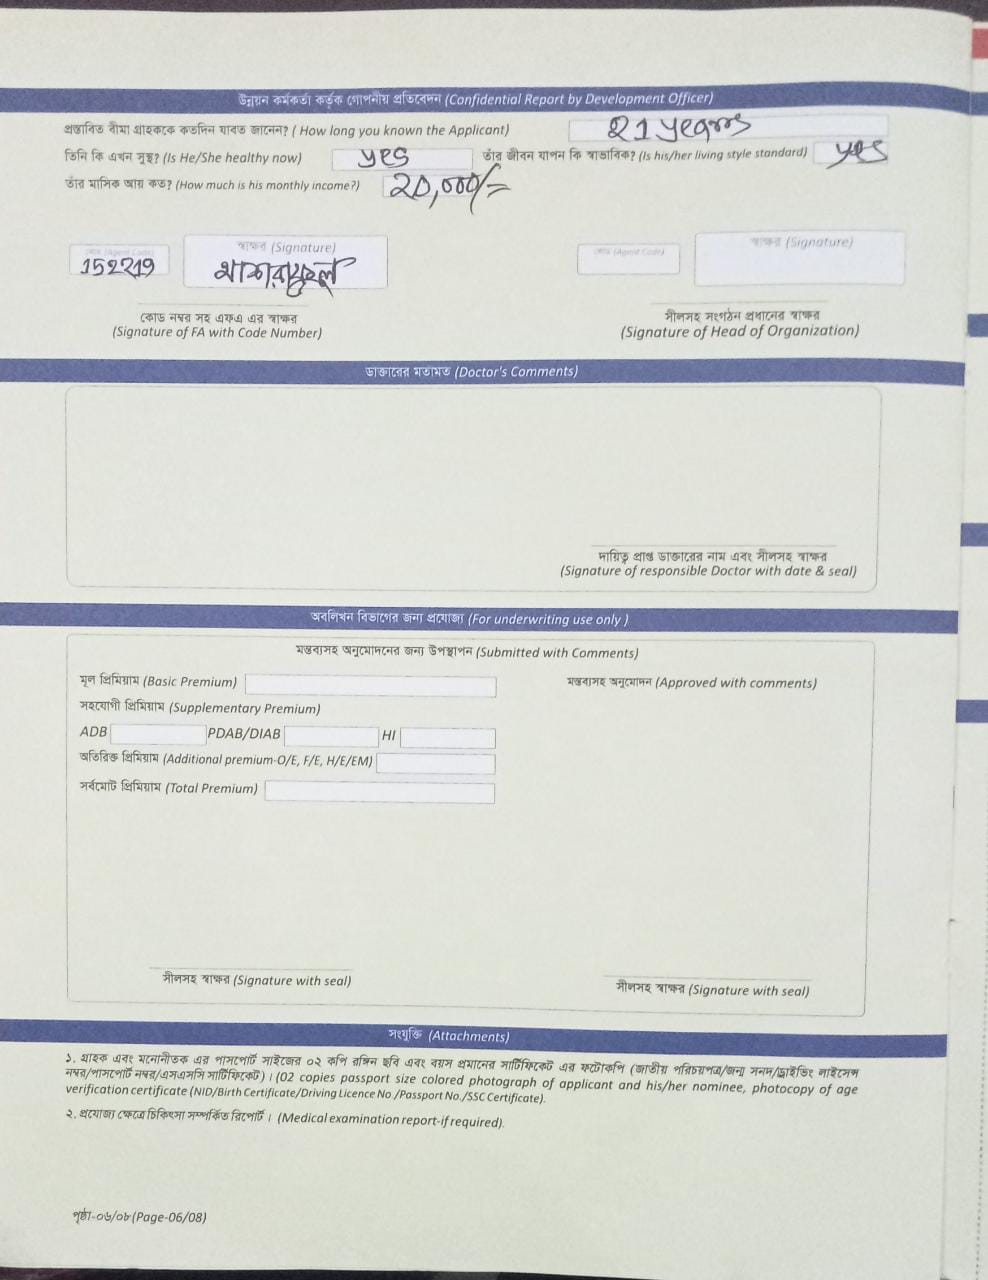 উন্নয়ন কর্মকর্তা কর্তৃক গোপনীয় প্রতিবেদন (Confidential Report by Development Officer)
প্রস্তাবিত বীমা গ্রাহককে কতদিন যাবত জানেন? ( How long you known the Applicant) 21 years
তিনি কি এখন সুস্থ? (Is He/She healthy now) yes তাঁর জীবন যাপন কি স্বাভাবিক? (Is his/her living style standard) yes
তাঁর মাসিক আয় কত? (How much is his monthly income?) 20,000/=
কোড (Agent Code) স্বাক্ষর (Signature) কোড (Agent Code) স্বাক্ষর (Signature)
152219 মাশরাফুল
কোড নম্বর সহ এফএ এর স্বাক্ষর সীলসহ সংগঠন প্রধানের স্বাক্ষর
(Signature of FA with Code Number) (Signature of Head of Organization)
ডাক্তারের মতামত (Doctor's Comments)
দায়িত্ব প্রাপ্ত ডাক্তারের নাম এবং সীলসহ স্বাক্ষর
(Signature of responsible Doctor with date & seal)
অবলিখন বিভাগের জন্য প্রযোজ্য (For underwriting use only )
মন্তব্যসহ অনুমোদনের জন্য উপস্থাপন (Submitted with Comments)
মূল প্রিমিয়াম (Basic Premium) মন্তব্যসহ অনুমোদন (Approved with comments)
সহযোগী প্রিমিয়াম (Supplementary Premium)
ADB PDAB/DIAB HI
অতিরিক্ত প্রিমিয়াম (Additional premium-O/E, F/E, H/E/EM)
সর্বমোট প্রিমিয়াম (Total Premium)
সীলসহ স্বাক্ষর (Signature with seal) সীলসহ স্বাক্ষর (Signature with seal)
সংযুক্তি (Attachments)
১. গ্রাহক এবং মনোনীতক এর পাসপোর্ট সাইজের ০২ কপি রঙ্গিন ছবি এবং বয়স প্রমানের সার্টিফিকেট এর ফটোকপি (জাতীয় পরিচয়পত্র/জন্ম সনদ/ড্রাইভিং লাইসেন্স
নম্বর/পাসপোর্ট নম্বর/এসএসসি সার্টিফিকেট)। (02 copies passport size colored photograph of applicant and his/her nominee, photocopy of age
verification certificate (NID/Birth Certificate/Driving Licence No./Passport No./SSC Certificate).
২. প্রযোজ্য ক্ষেত্রে চিকিৎসা সম্পর্কিত রিপোর্ট। (Medical examination report-if required).
পৃষ্ঠা-০৬/০৮ (Page-06/08)